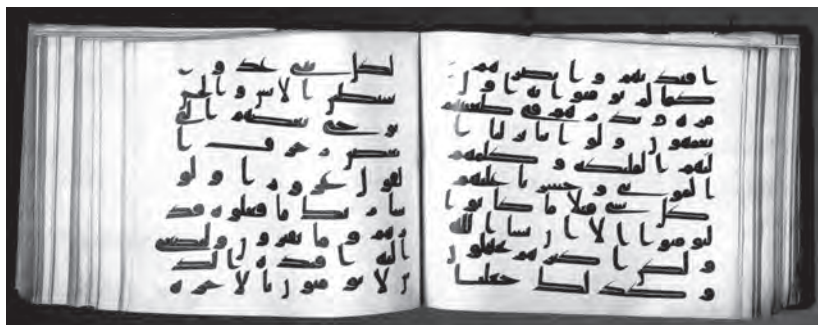 افئدتهم وابصرهم
كما لم يومنوا به اول
مره ونذرهم في طغينهم
يعمهون ولو اننا نزلنا ا
ليهم الملئكه وكلمهم
الموتى وحشرنا عليهم
كل شى قبلا ما كانوا
ليومنوا الا ان يشا الله
ولكن اكثرهم يجهلون
وكذلك جعلنا
لكل نبى عدوا
شيطين الانس والجن
يوحى بعضهم الى
بعض زخرف ا
لقول غرورا ولو
شا ربك ما فعلوه فذ
رهم وما يفترون ولتصغى
اليه افئده الذين
لا يومنون بالاخره